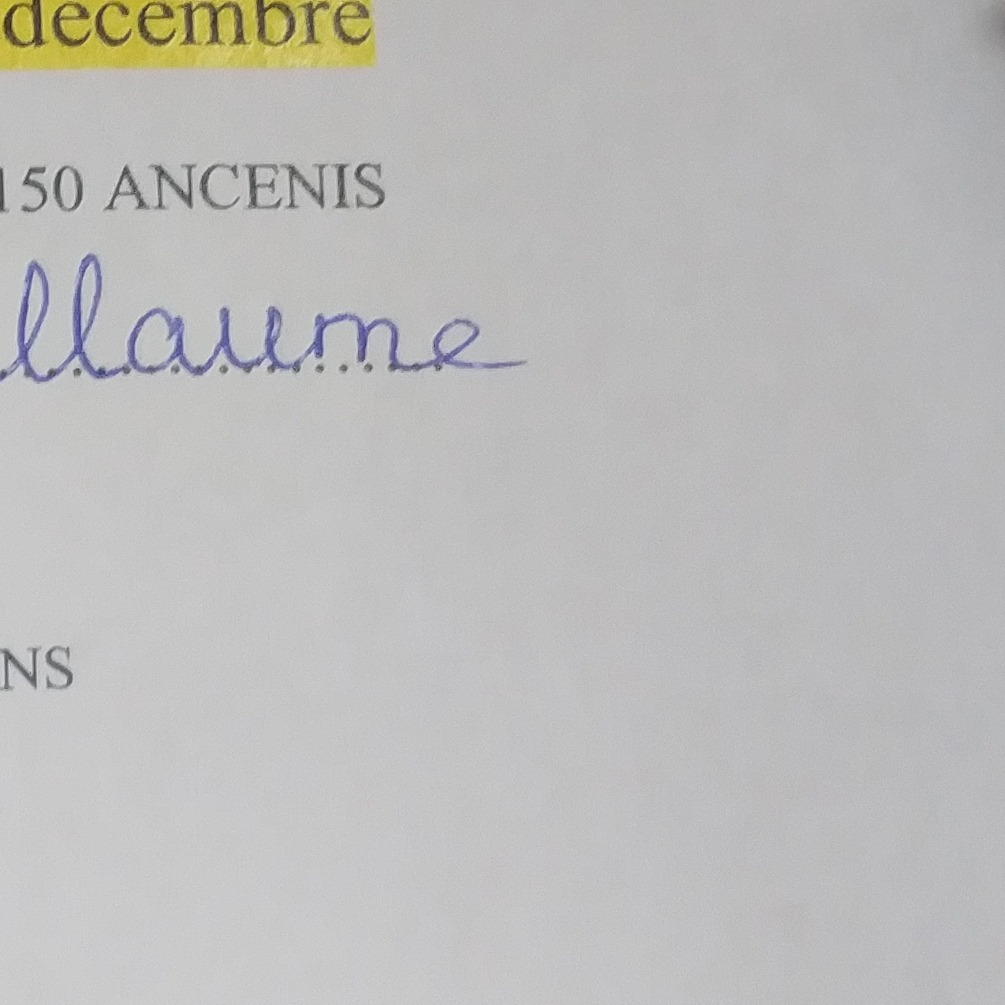 décembre
150 ANCENIS
llaume
NS